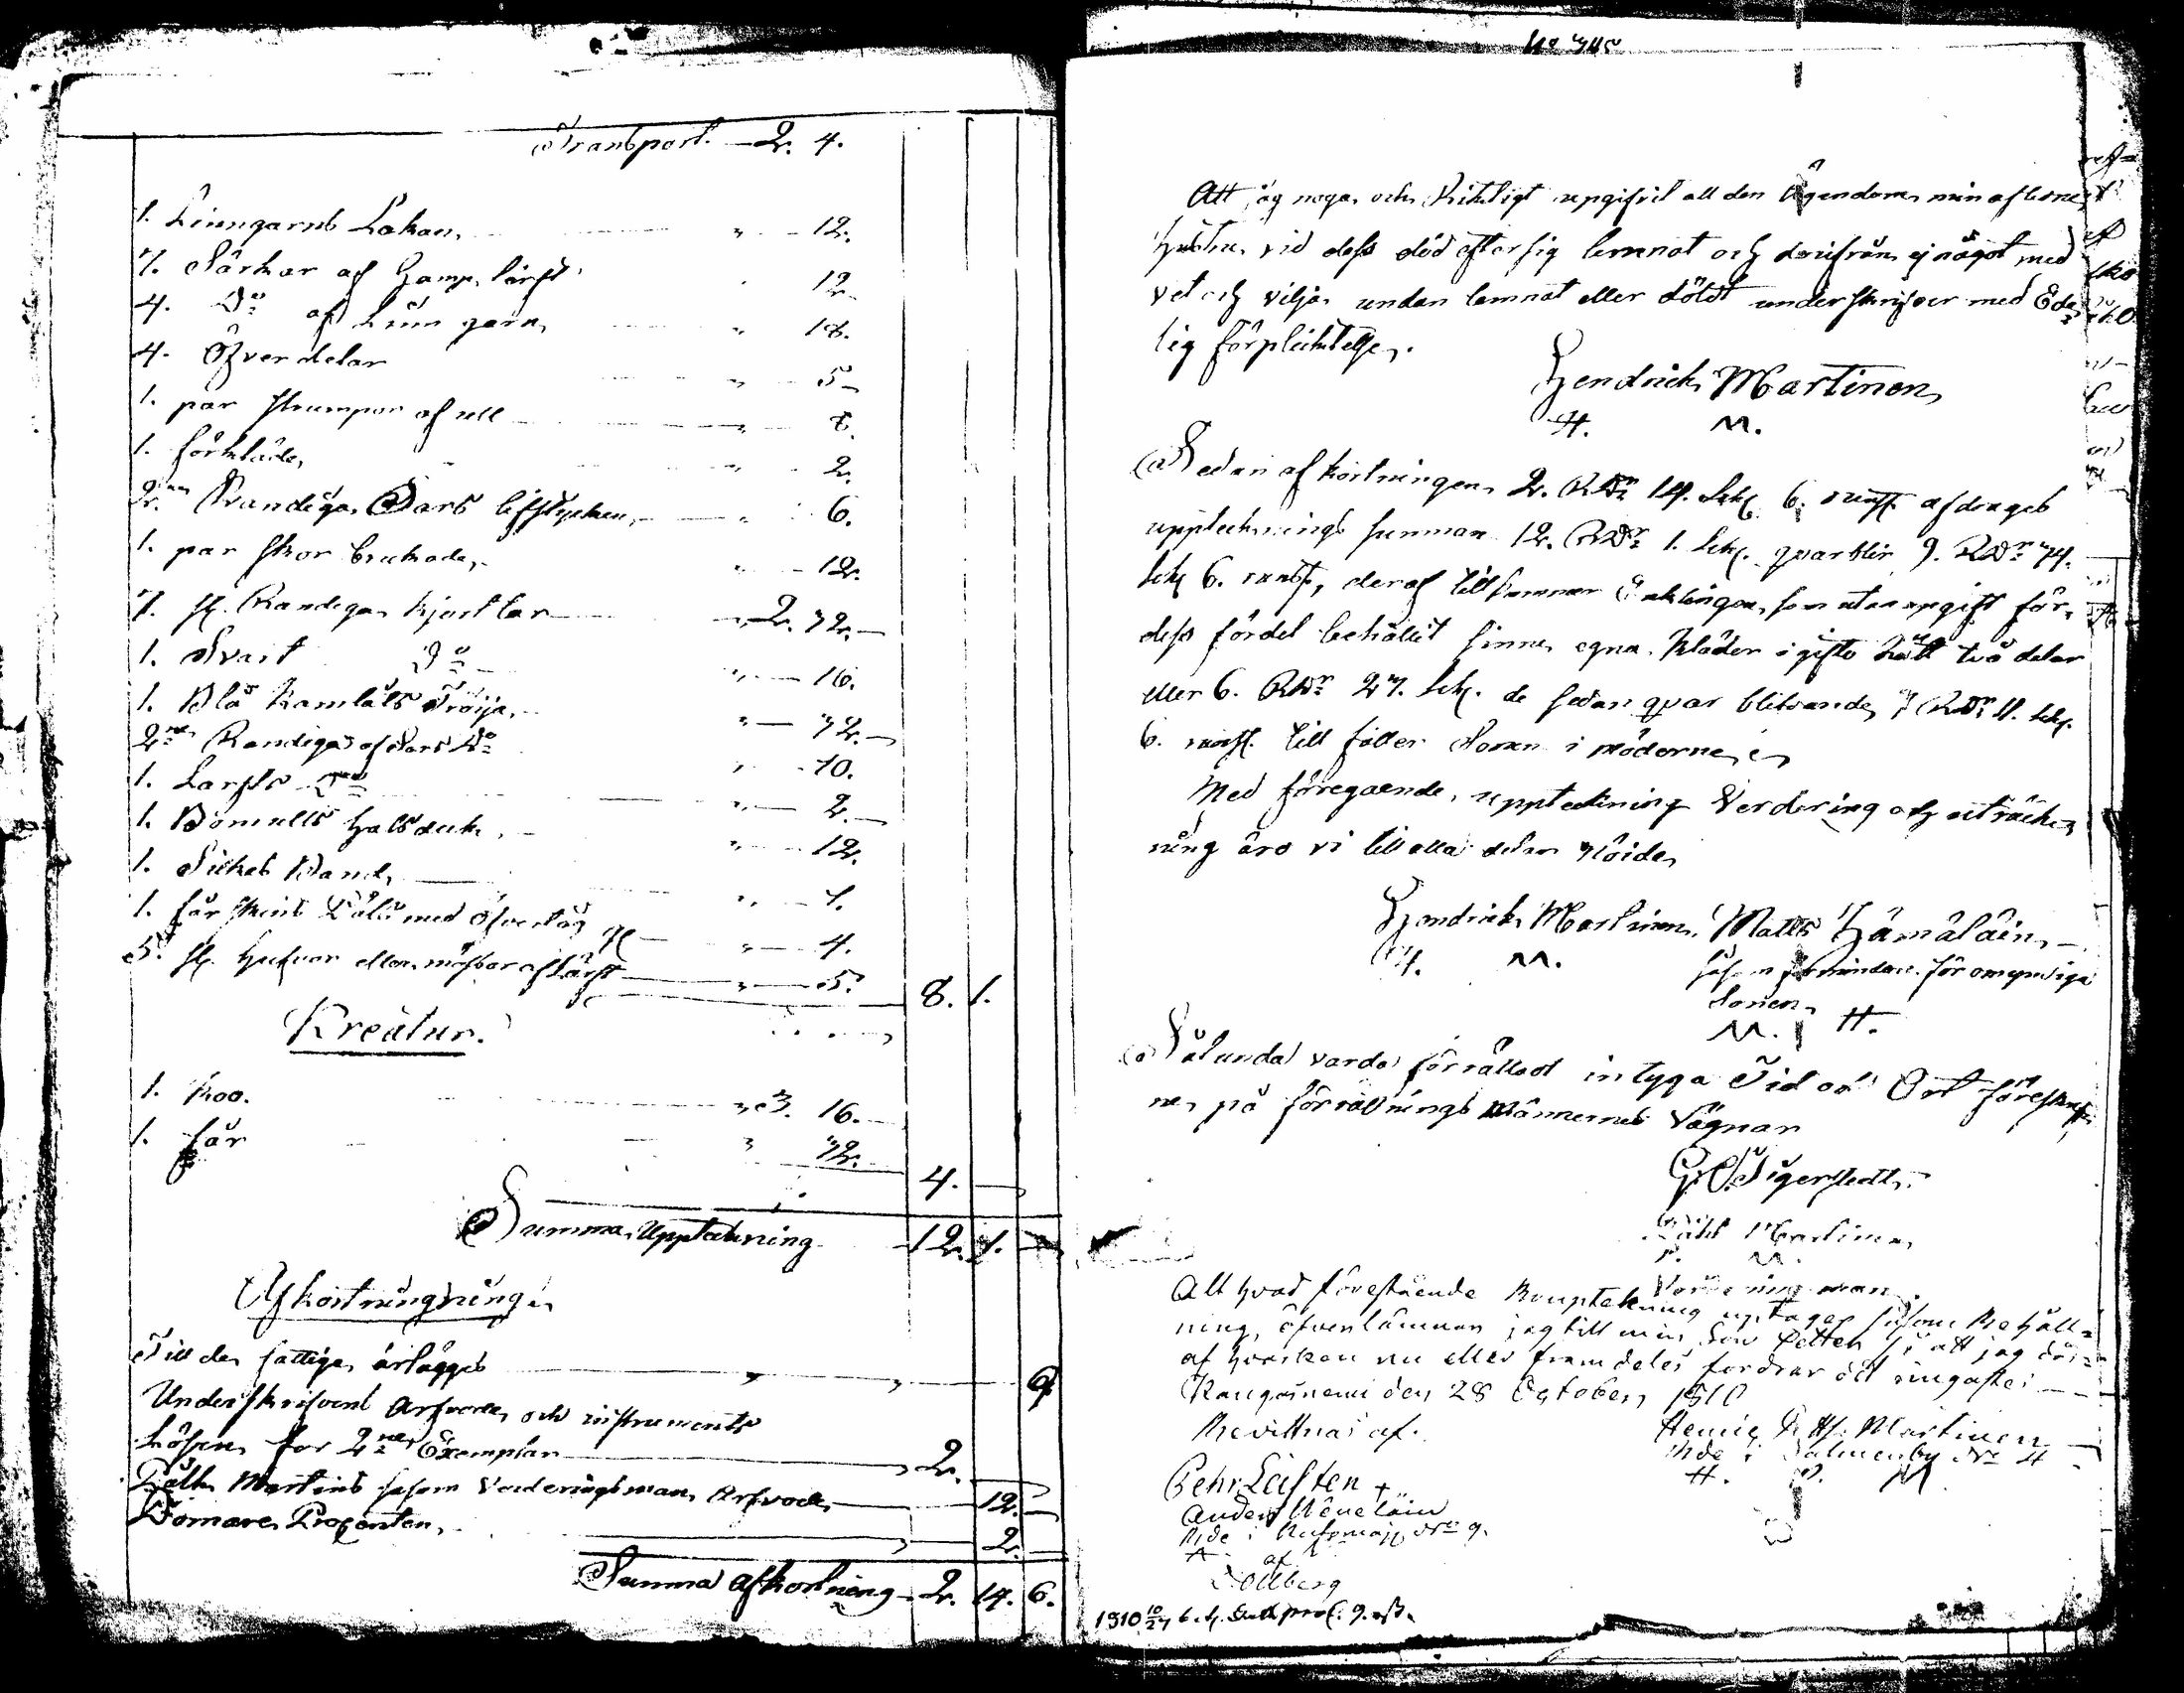 Transport. 2. 4.
1. Linngarns Lakan, " 12.
7. Särkar af Hamp lärft " 12
4. Do af Linn garn, " 18.
4. Öfver delar " 5
1. par strumpor af ull " 8.
1. förkläde, " 2.
2ne Randiga Sars lifstycken, " 6.
1. par skor brukade, " 12.
7. st. Randiga kjortlar " 2. 32.
1. Svart Do " 16.
1. Blå Kamlåts Tröija, " 32.
2ne Randiga af Sars Do " 10.
1. Larfts Do " 2.
1. Bomulls halsduk, " 12.
1. Silkes Band, " 1.
1. får skins med öfvertåg " 4.
5. st. hufvor eller mössor af Lärft " 5. 8. 1.
Kreatur.
1. Koo. " 3. 16.
1. får " 32. 4.
Summa Upptekning 12. 1.
Afkortningning
Till de fattiga erlägges " 6
Underskrifvens Arfvode och instruments
Lösen for 2ne Exemplar 2.
Påhl Martins såsom Värderingsman Arfvode 12.
Domare Procenten, 2.
Summa afkortning 2. 14. 6.
Att jag noga och Riktigt upgifvit all den Ägendom min afledne
hustru vid dess död efter sig lemnat och derifrån ej något med
vet och vilja undan lemnat eller döldt underskrifver med Ede-
lig förpliktelse.
Hendrich Martinen
H. M.
Sedan afkortningen 2. RDr 14. sch. 6. runst. afdrages
upptecknings summan 12. RDr 1. sch. qvarblir 9. RDr 34.
sch 6. runst, deraf tillkommer Enklingen, som utan upgift för
dess fördel behållit sinna egna kläder i gifto Rätt två delar
eller 6. RDr 27. sch. de sedan qvar blifvande 3 RDr 11. sch.
6. runst. till faller Sonen i möderne
Med föregaende, upptekning Verdering och uträck-
ning äro vi till alla delar nöide
Hendrich Martinen. Matts Hämäläin
H. M. såsom förmindare för omyndiga
Sonen,
M. H.
Sålunda varda förrättad intyga Tid och Ort föreskrif
ne, på förrättnings männernes Vägnar
G. O. Tigerstedt.
Påhl Martinen
P. M.
Värderingsman.
Alt hvad förestående Bouptekning uptager såsom Behåll-
ning, öfverlämnar jag till min Son Petter så att jag där-
af hvarken nu eller framdeles fordrar det ringaste
Kangasniemi den 28 October 1810
Bevittnas af. Henric P. Hs. Martinen
Bde i Salmenby No 4
H. P. M
Pehr Leisten +
Anders
Bde i No 9.
A
af
Sollberg
1810 10/27